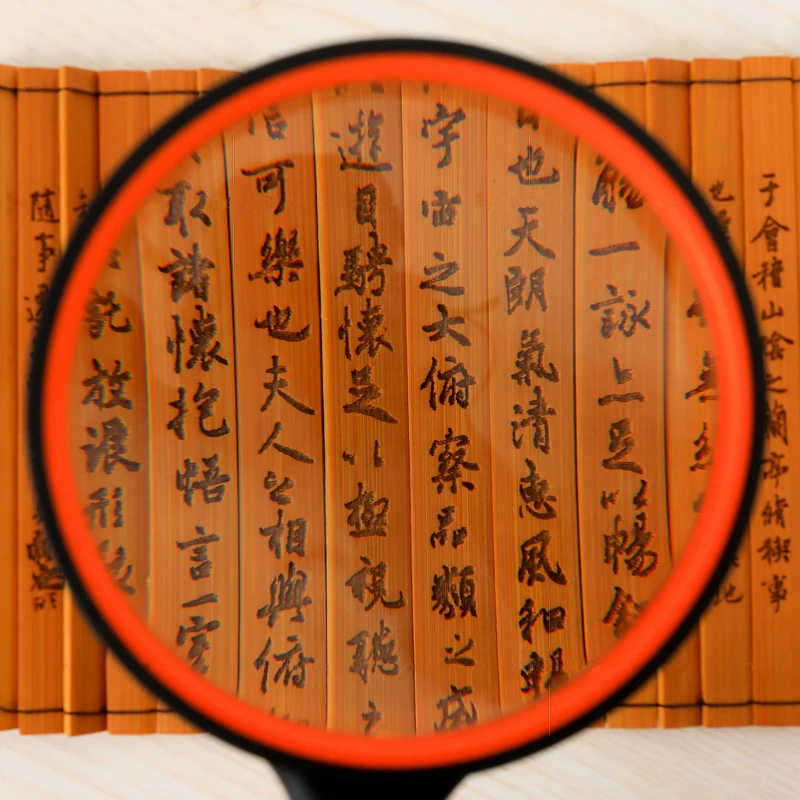 于會稽山陰之蘭亭脩禊事
也
無絲
一詠亦足以暢敘
也天朗氣清惠風和暢
宇宙之大俯察品類之盛
遊目騁懷足以極視聽之
信可樂也夫人之相與俯
取諸懷抱悟言一室
託放浪形骸
隨事遷